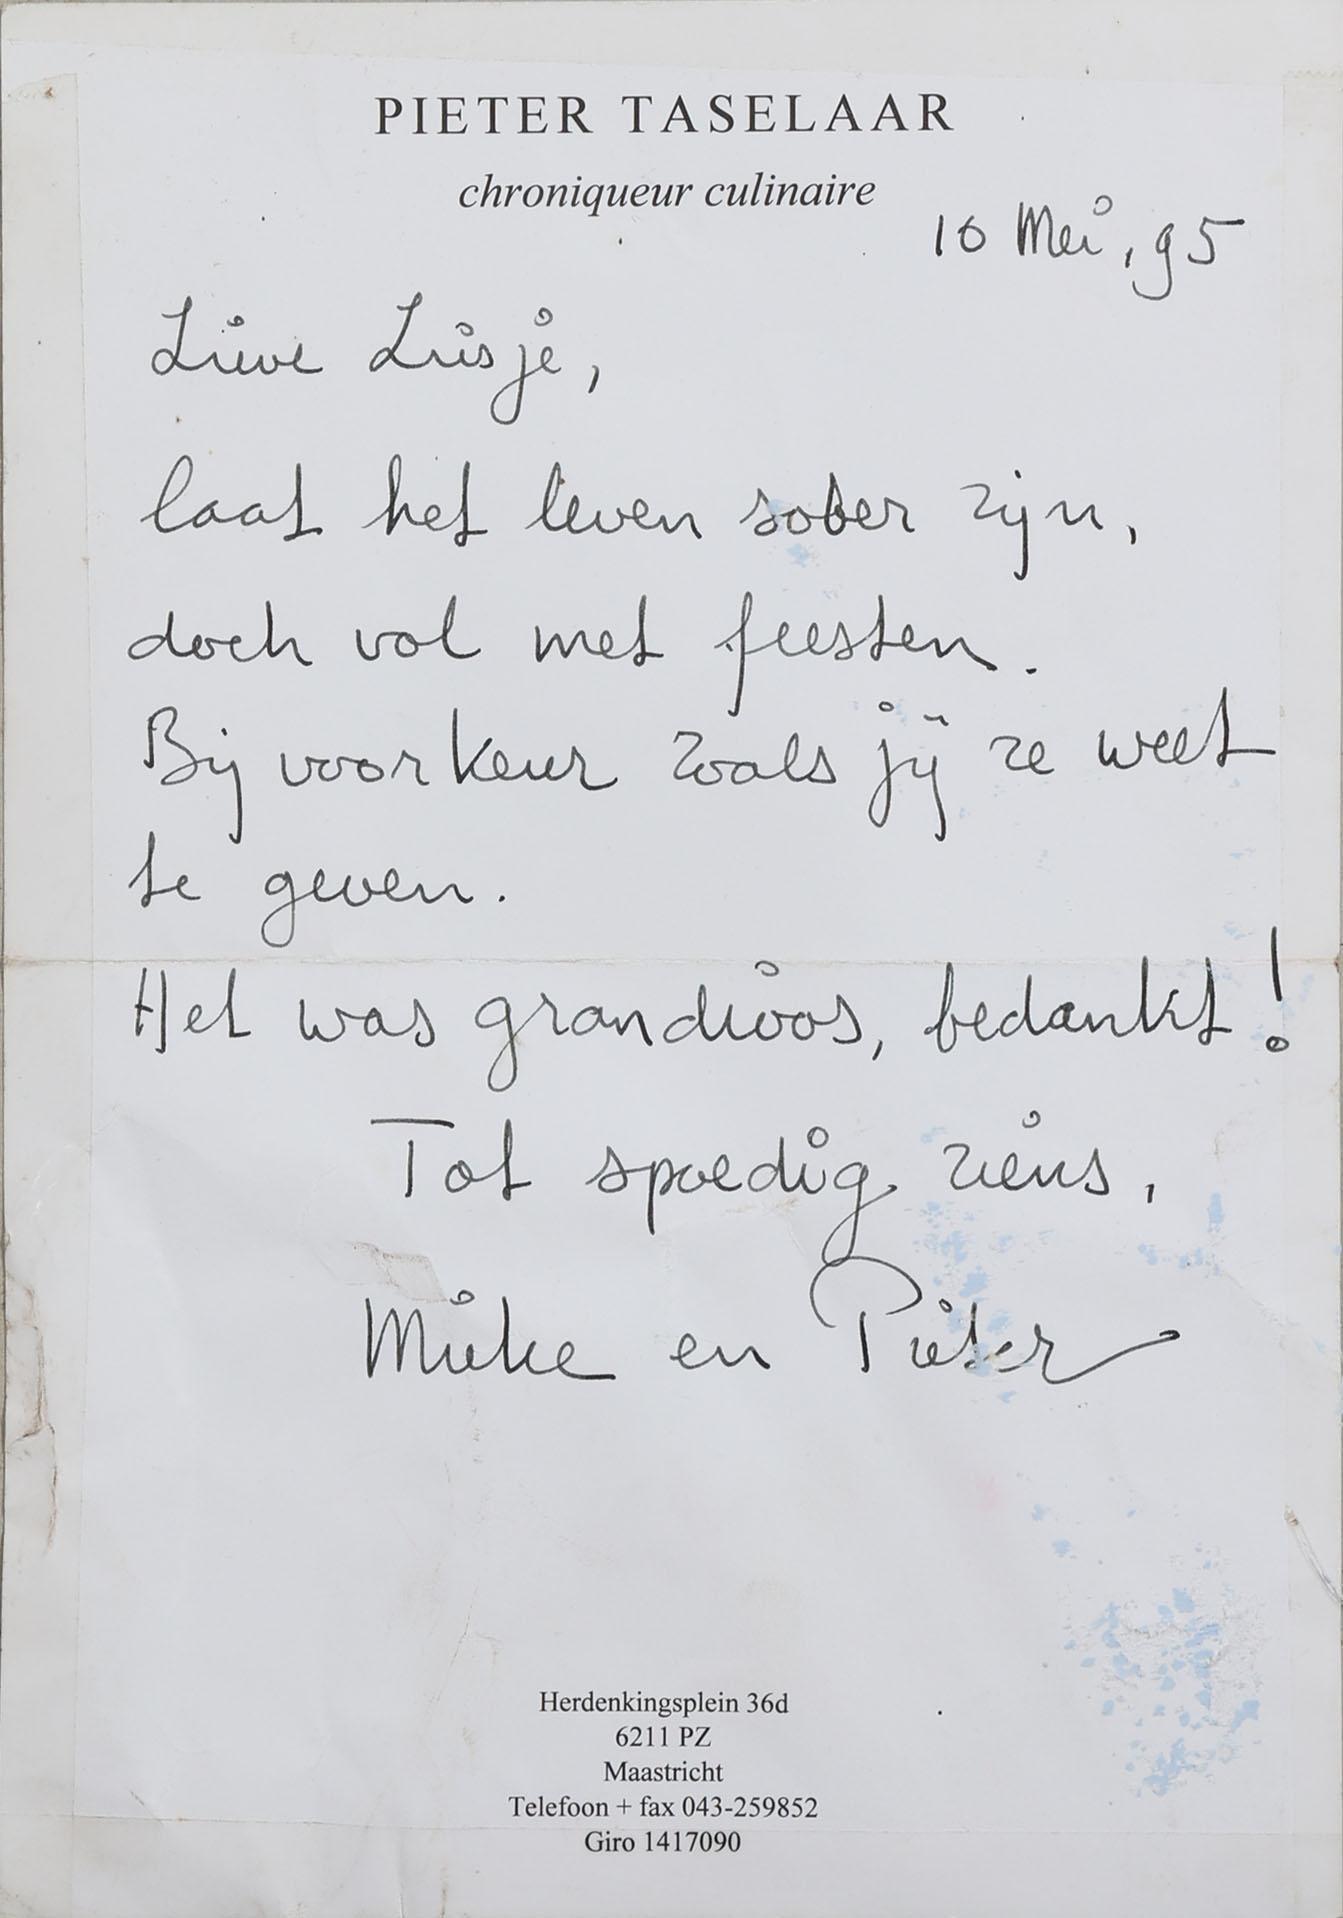 PIETER TASELAAR
chroniqueur culinaire
10 Mei, 95
Lieve Liesje,
laat het leven sober zijn,
doch vol met feesten.
Bij voorkeur zoals jij ze weet
te geven.
Het was grandioos, bedankt!
Tot spoedig ziens,
Mieke en Pieter
Herdenkingsplein 36d
6211 PZ
Maastricht
Telefoon + fax 043-259852
Giro 1417090